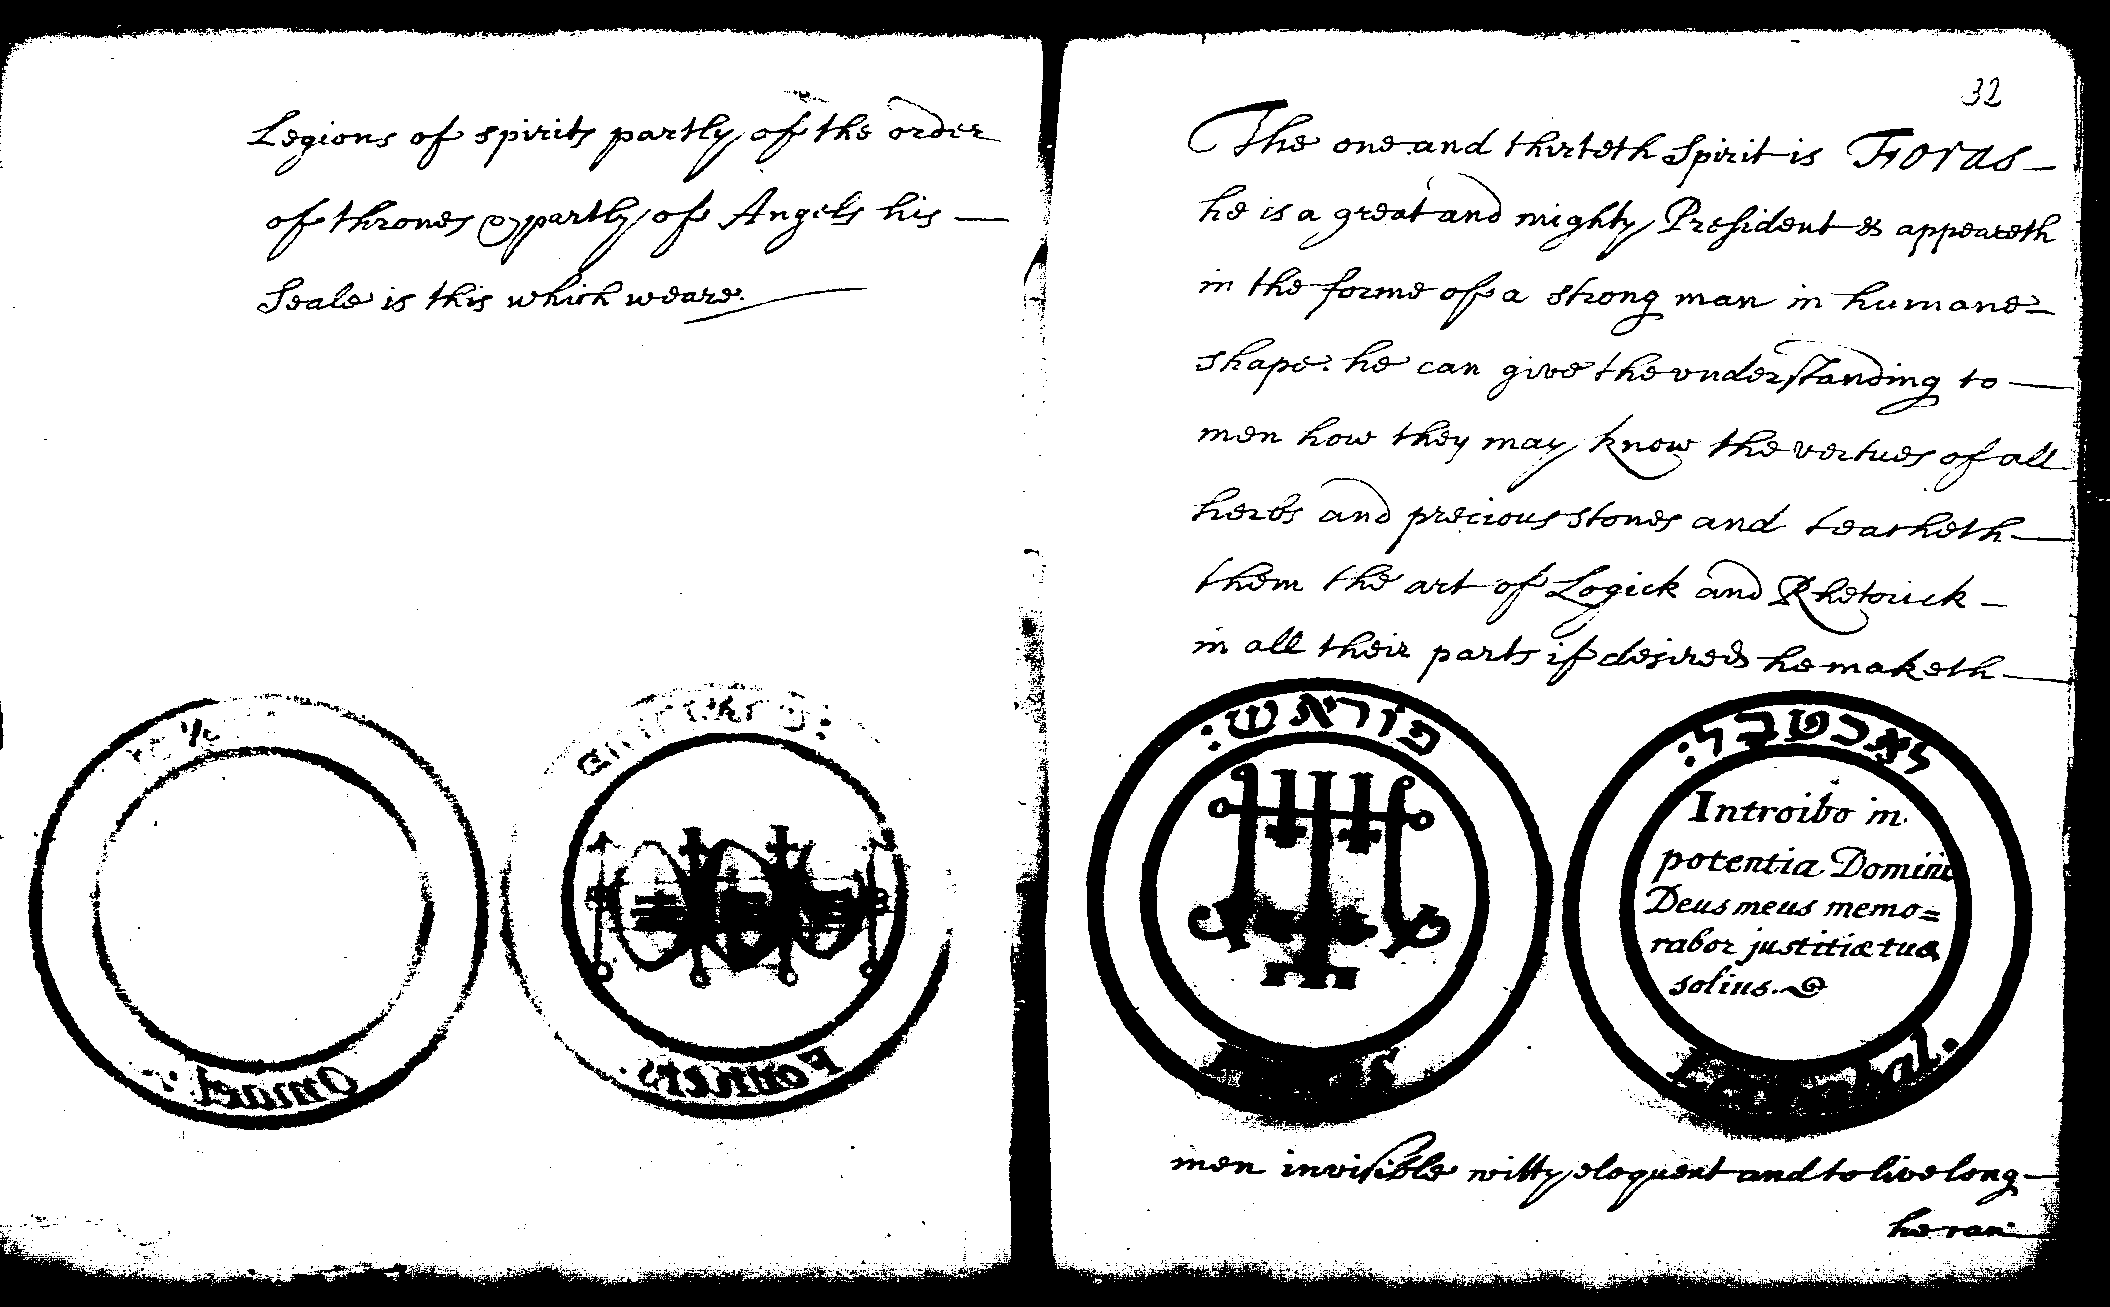 Legions of spirits partly of the order
of thrones & partly of Angels his —
Seale is this which weare.
Omael
Forners.
32
The one and thirteth Spirit is Foras —
he is a great and mighty President & appeareth
in the forme of a strong man in humane
shape. he can give the vnderstanding to —
men how they may know the vertues of all
herbs and precious stones and teacheth —
them the art of Logick and Rhetorick —
in all their parts if desired he maketh —
פוראש:
לאכטבל:
Introibo in
potentia Domini
Deus meus memo=
rabor justitiæ tuæ
solius.
men invisible witty eloquent and to live long —
he can